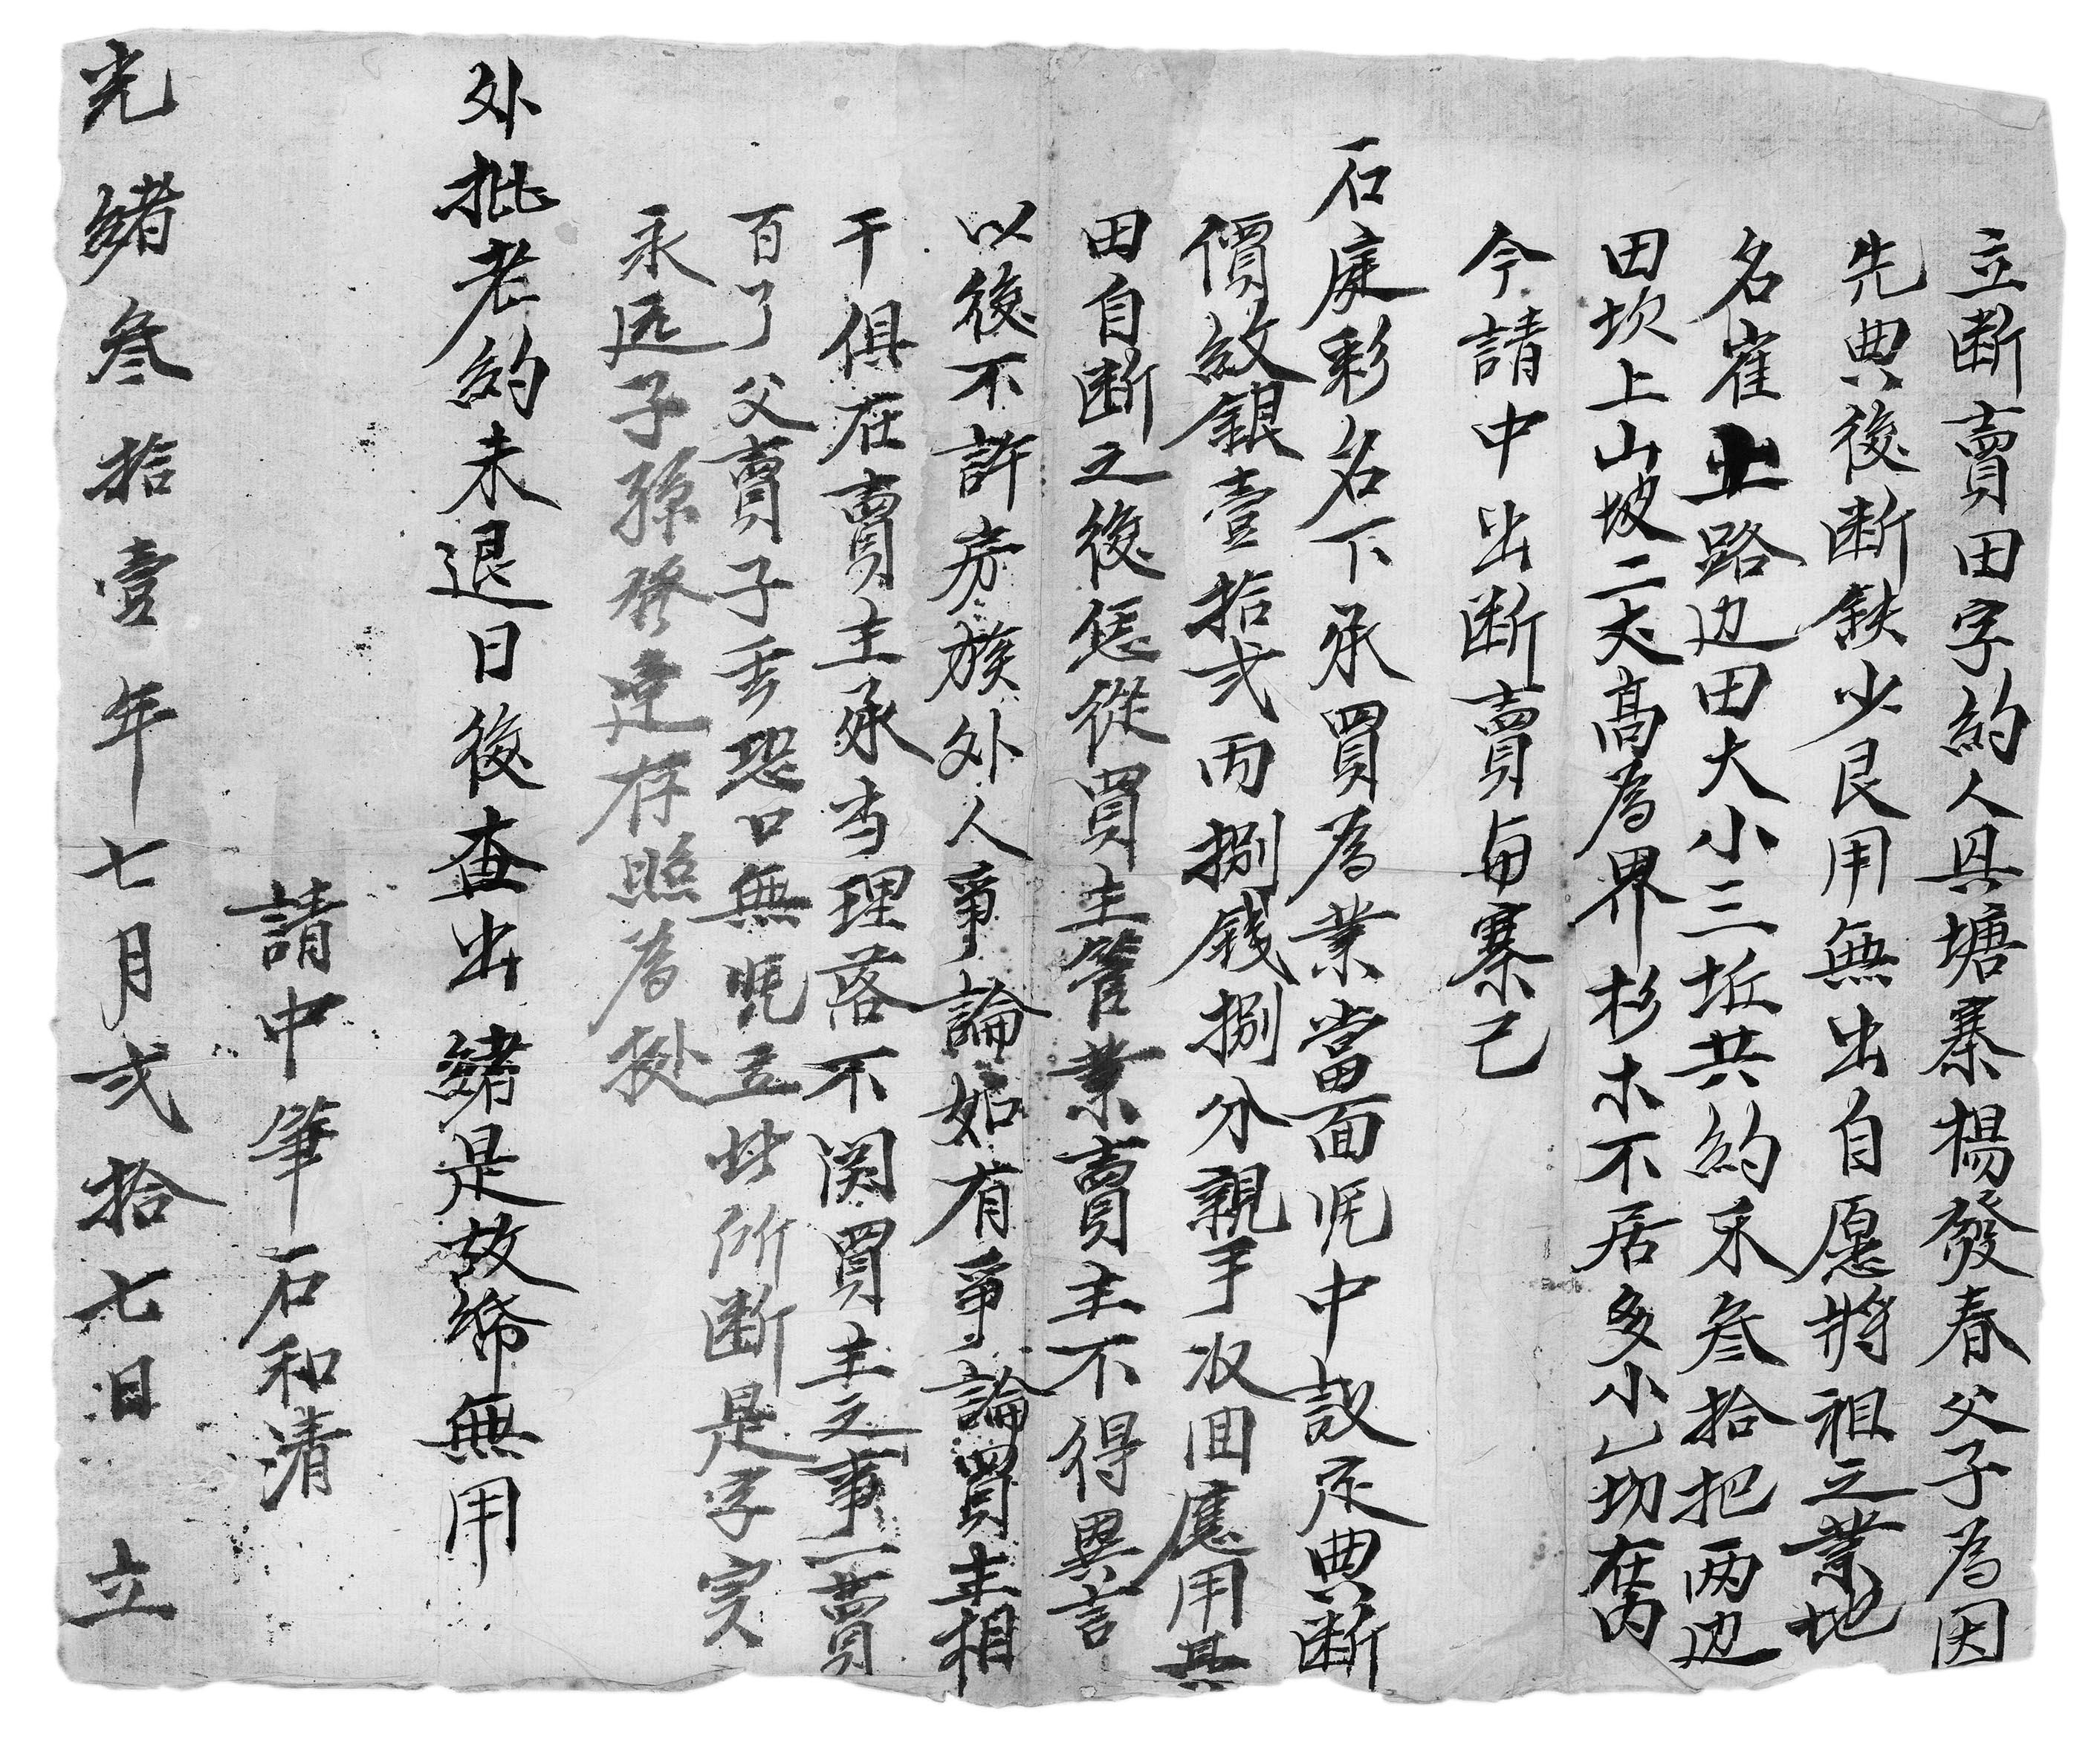 立断賣田字約人具塘寨楊發春父子為因
先典後断鈌少艮用無出自愿將祖之業地
名崔㘯路边田大小三坵共約禾叁拾把两边
田坎上山坡二丈髙為界杉木不居多小一切在内
今請中出断賣与寨己
石庭彩名下承買為業當面凴中議定典断
價紋銀壹拾弍両捌錢捌分親手收回應用其
田自断之後恁從買主管業賣主不得異言
以後不許房族外人爭論如有爭論買主相
干俱在賣主承当理落不関買主之事一賣
百了父賣子丢恐口無凴立此所断是字実
永远子孫發達存照為㨿
外批老約未退日後查出緒是故帋無用
請中筆石和清
光緒叁拾壹年七月弍拾七日立